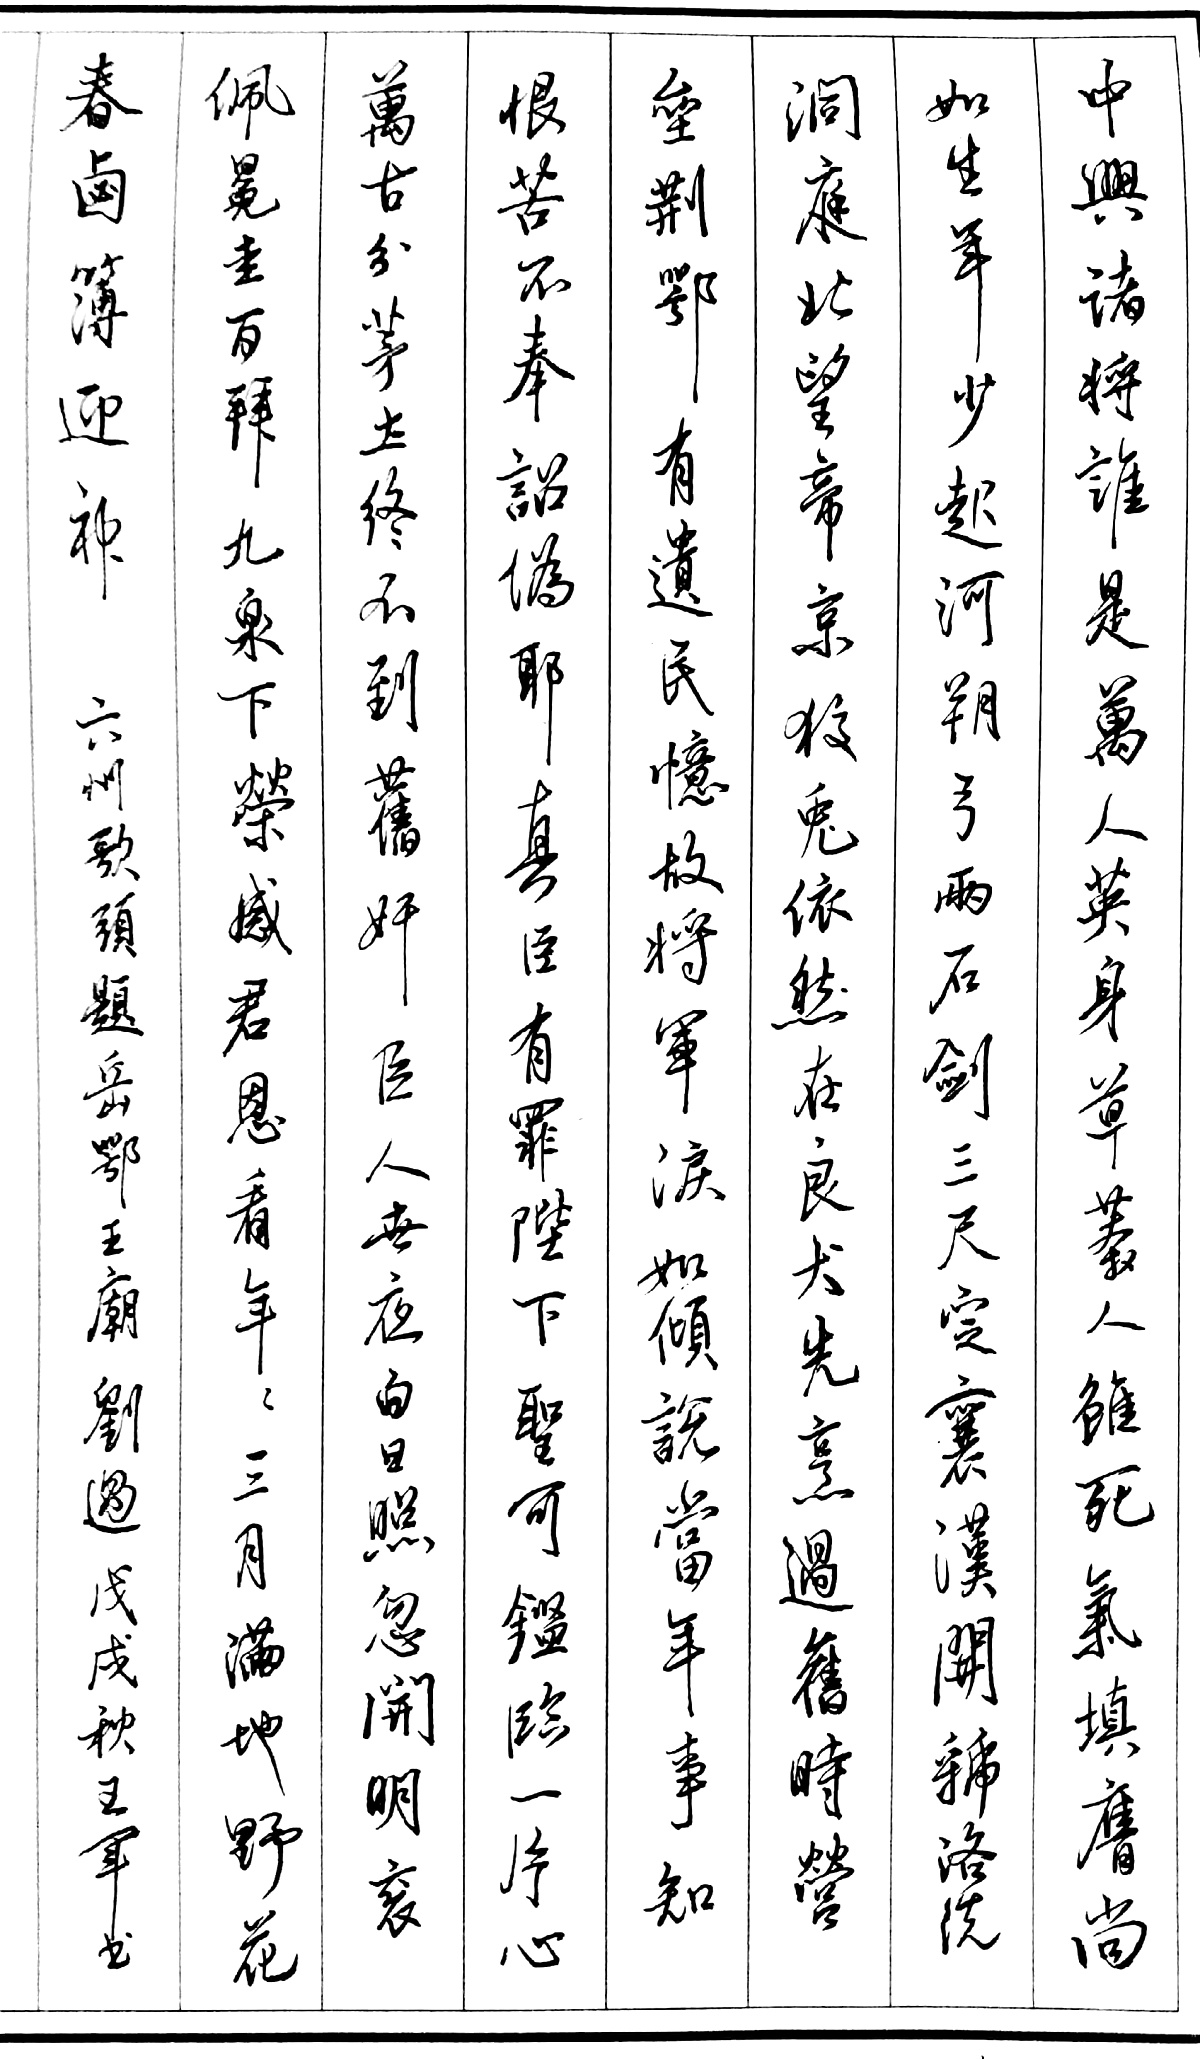 中興諸將誰是萬人英身草莽人雖死氣填膺尚
如生年少起河朔弓兩石劍三尺定襄漢開虢洛洗
洞庭北望帝京狡兔依然在良犬先烹過舊時營
壘荊鄂有遺民憶故將軍淚如傾說當年事知
恨苦不奉詔偽耶真臣有罪陛下聖可鑑臨一片心
萬古分茅土終不到舊奸臣人世夜白日照忽開明袞
佩冕圭百拜九泉下榮感君恩看年〻三月滿地野花
春鹵簿迎神 六州歌頭題岳鄂王廟 劉過 戊戌秋王軍书